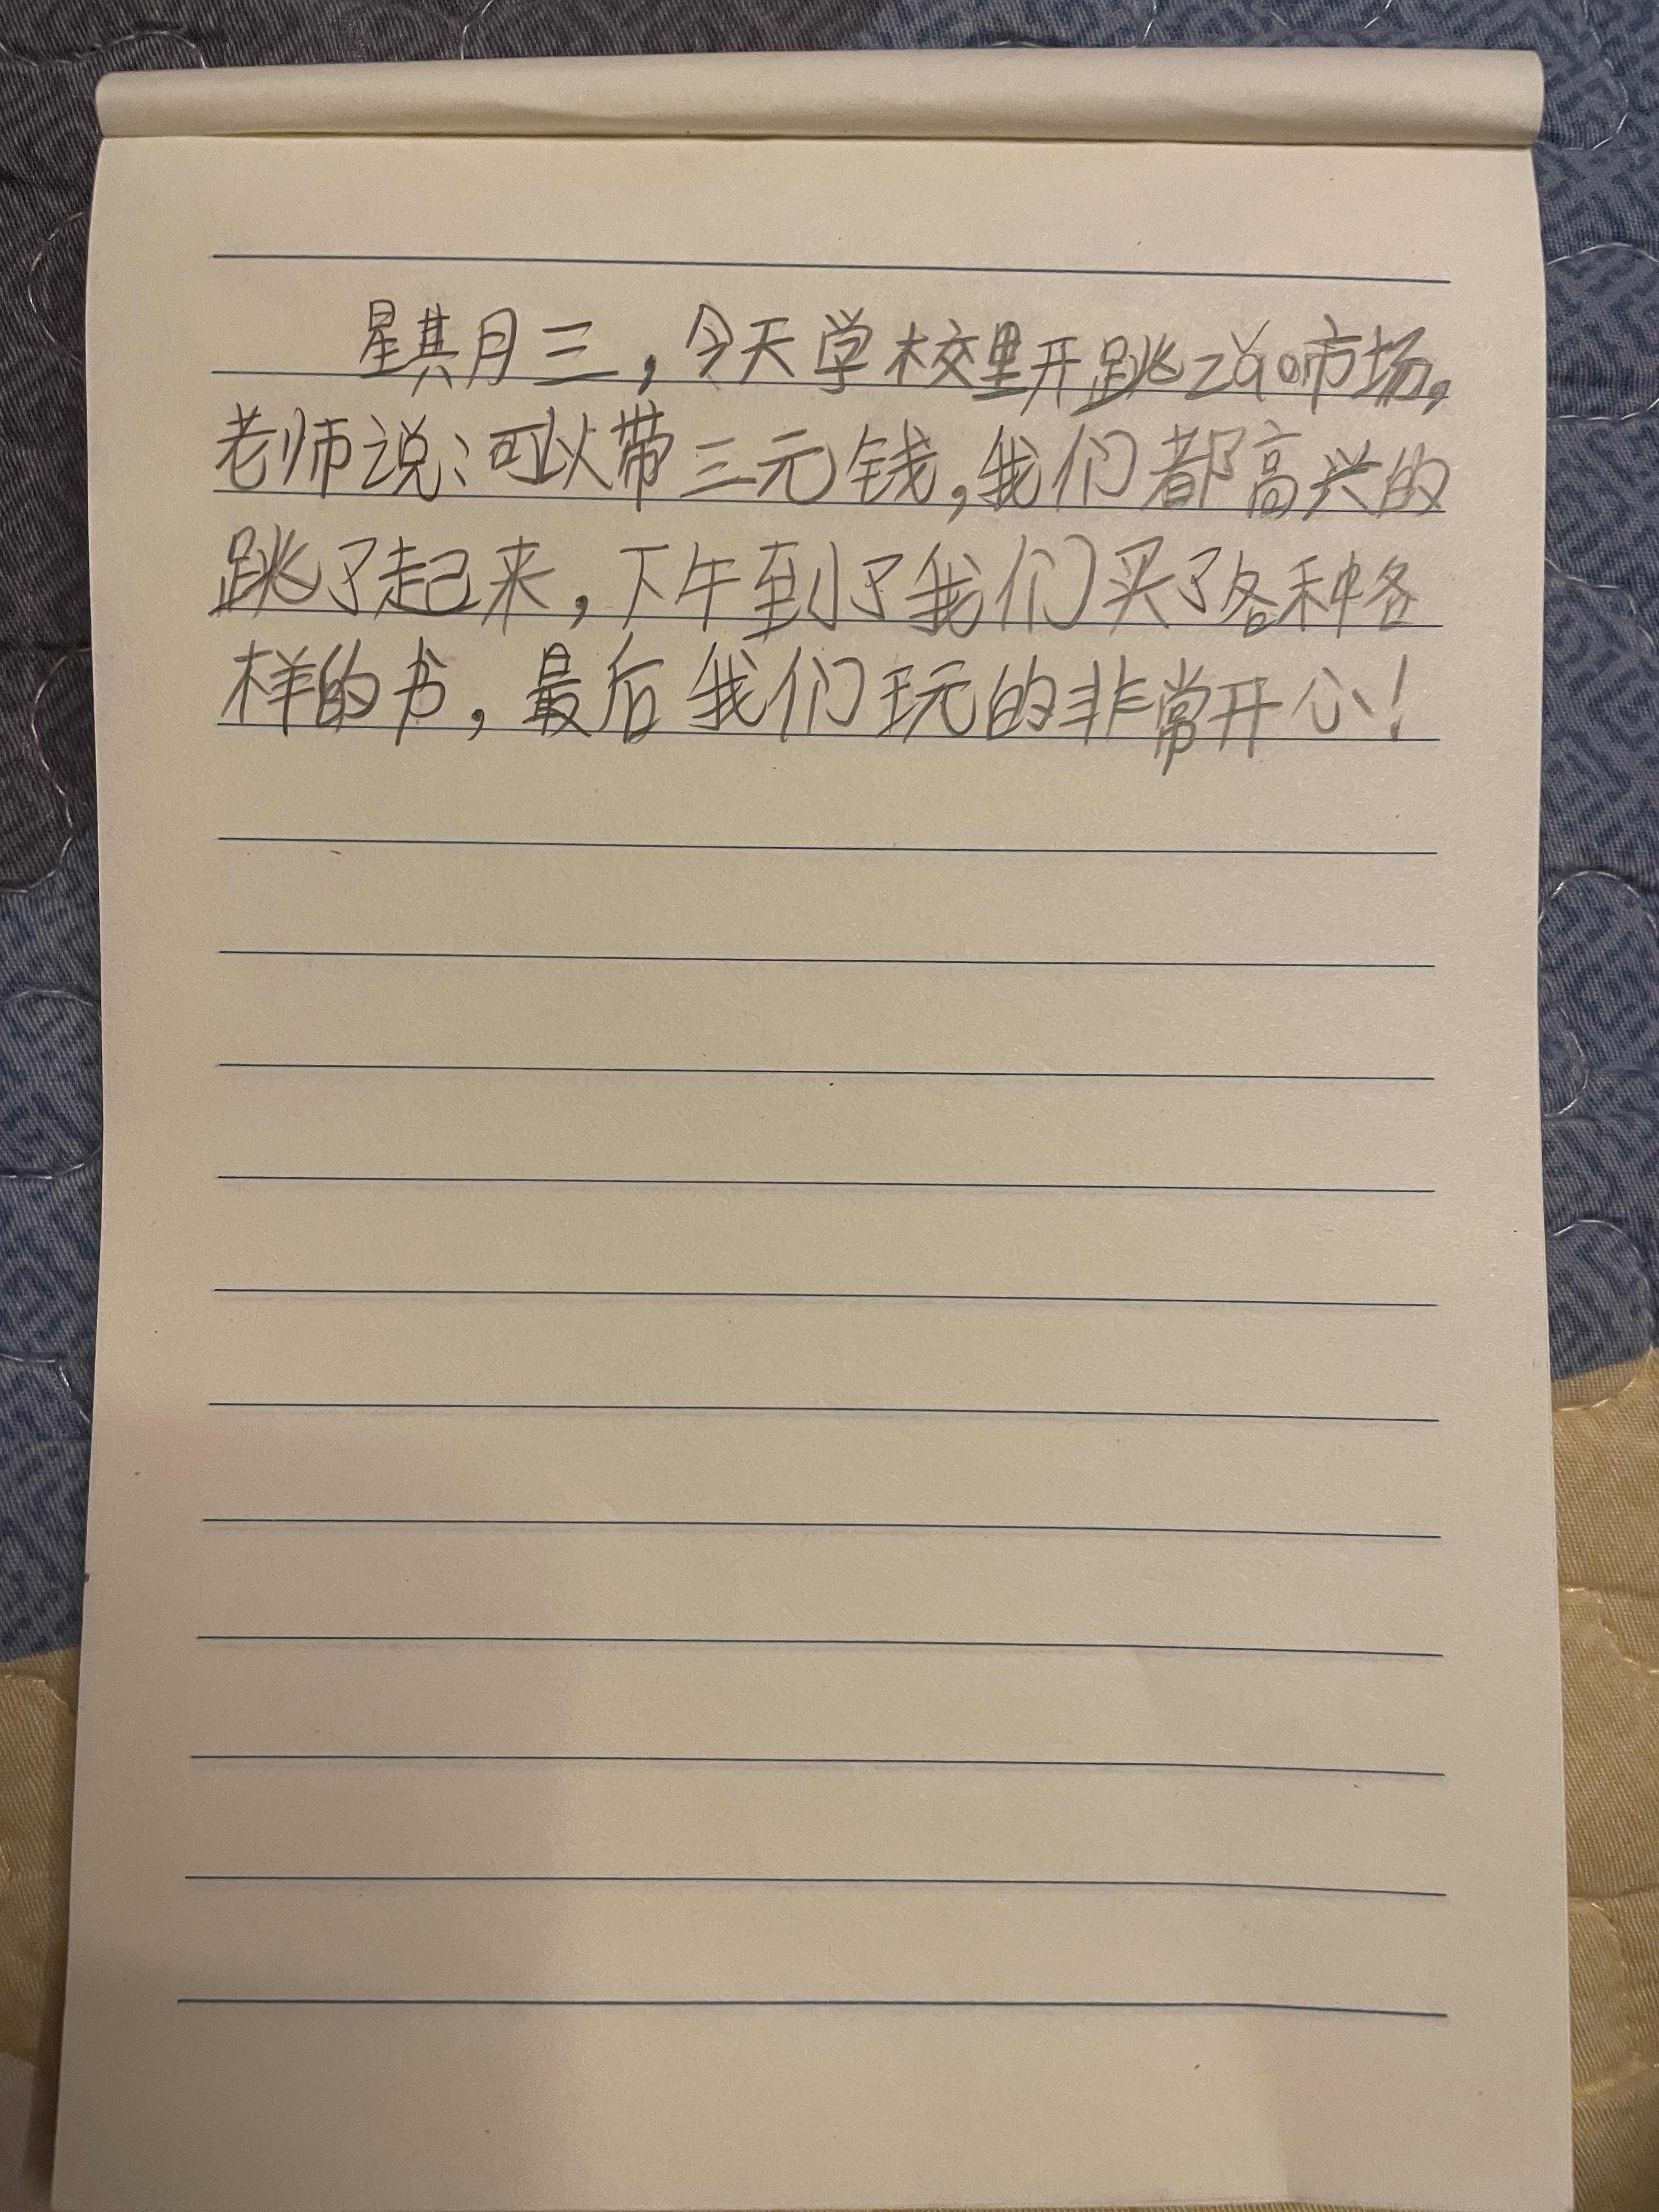 星期三，今天学校里开跳zǎo市场，
老师说：可以带三元钱，我们都高兴的
跳了起来，下午到了我们买了各种各
样的书，最后我们玩的非常开心！